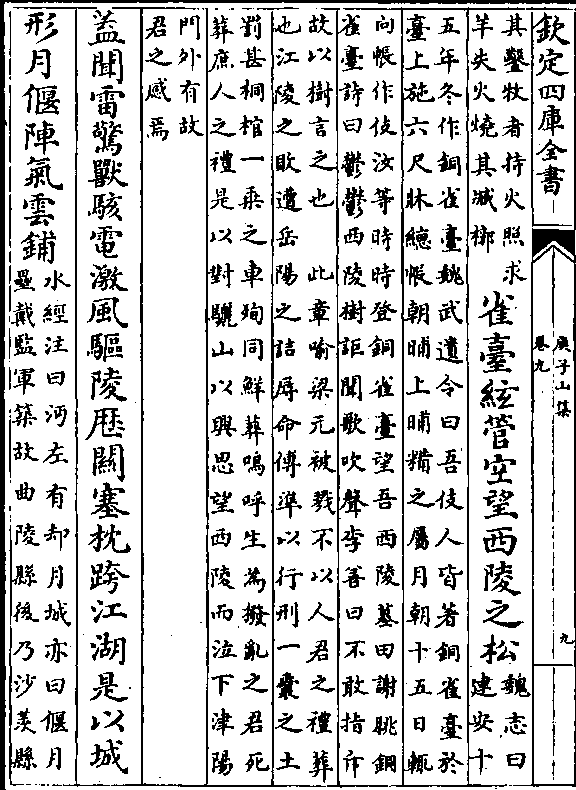 欽定四庫全書
庾子山集
卷九
九
其鑿牧者持火照求
羊失火燒其滅槨
雀臺絃管空望西陵之松
魏志曰
建安十
五年冬作銅雀臺魏武遺令曰吾伎人皆著銅雀臺於
臺上施六尺牀繐帳朝晡上晡糒之屬月朝十五日輒
向帳作伎汝等時時登銅雀臺望吾西陵墓田謝朓銅
雀臺詩曰鬱鬱西陵樹詎聞歌吹聲李善曰不敢指斥
故以樹言之也 此章喻梁元被戮不以人君之禮葬
也江陵之敗遭岳陽之詰辱命傅準以行刑一囊之土
罰甚桐棺一乘之車殉同鮮葬嗚呼生為撥亂之君死
葬庶人之禮是以對驪山以興思望西陵而泣下津陽
門外有故
君之感焉
蓋聞雷驚獸駭電激風驅陵歷關塞枕跨江湖是以城
形月偃陣氣雲鋪
水經注曰沔左有却月城亦曰偃月
壘戴監軍築故曲陵縣後乃沙羨縣